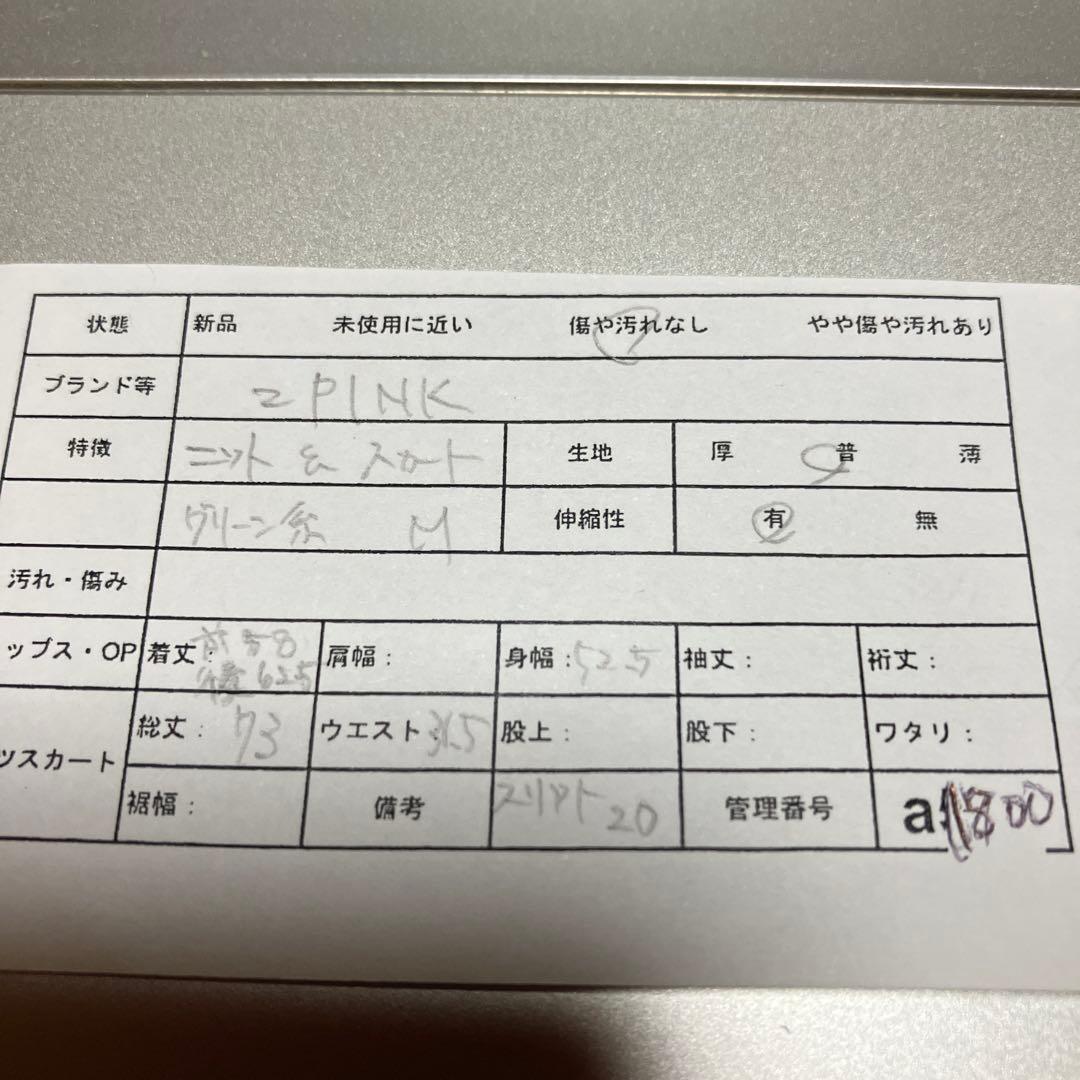 状態 新品 未使用に近い 傷や汚れなし やや傷や汚れあり
ブランド等 PINK
特徴 ニット & スカート 生地 厚 普 薄
グリーン系 M 伸縮性 有 無
汚れ・傷み
ップス・OP 着丈: 前58 後62.5 肩幅: 身幅:52.5 袖丈: 裄丈:
ツスカート 総丈: 73 ウエスト 31.5 股上: 股下: ワタリ:
裾幅: 備考 スリット 20 管理番号 1800